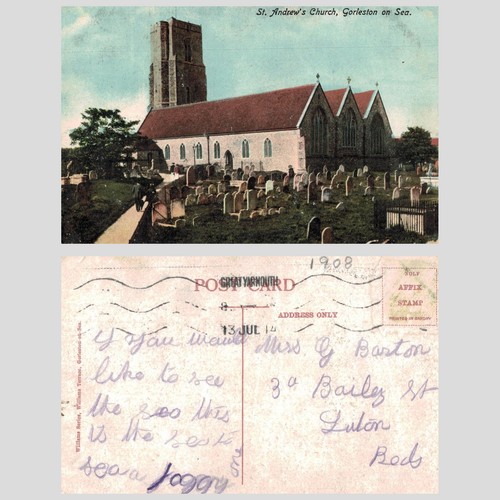 St. Andrew's Church, Gorleston on Sea.
1908
POST CARD
GREAT YARMOUTH
13 JUL 14
ADDRESS ONLY
AFFIX
STAMP
Williams Series, Williams Terrace, Gorleston on Sea.
if you
like to see
the sea this
is the
sea a foggy one
Mrs G Barton
3a Bailey St
Luton
Beds